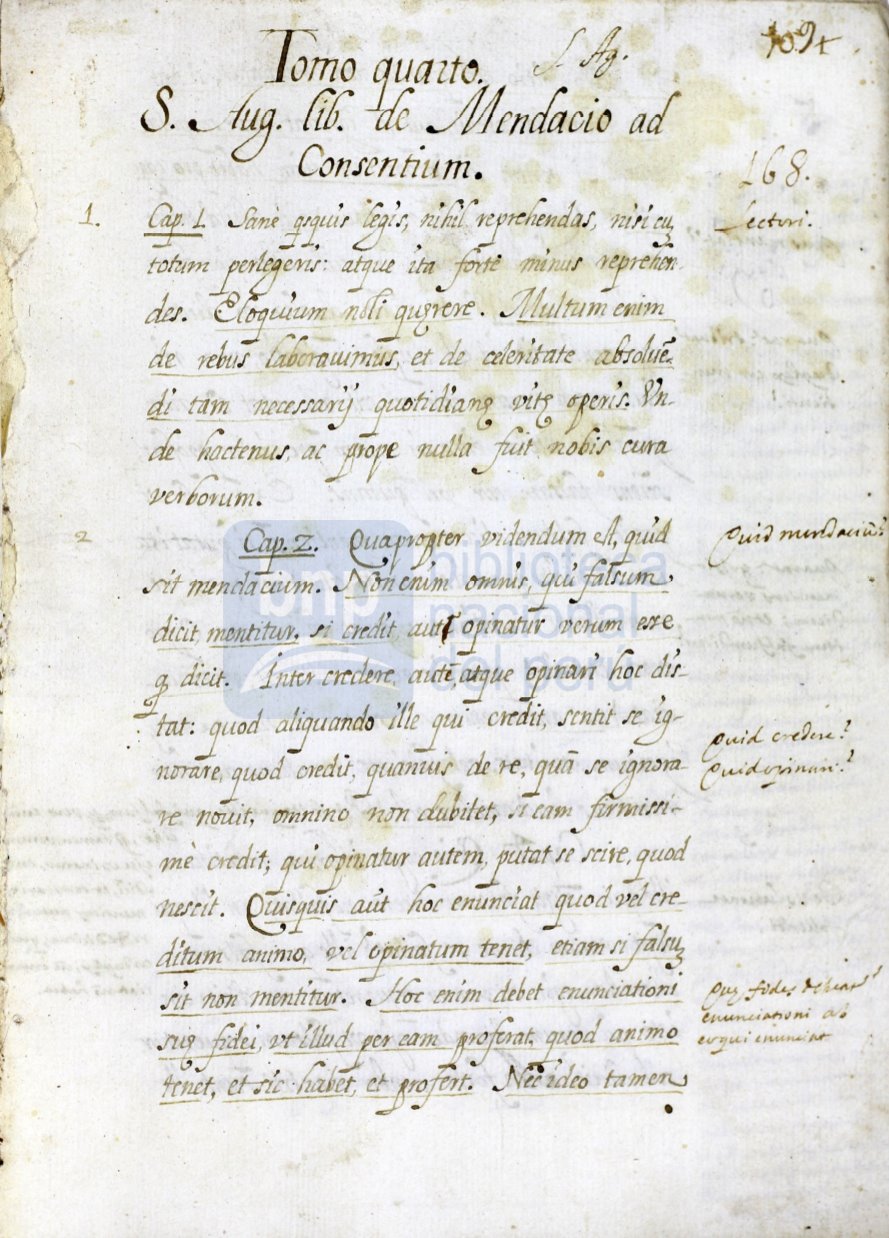 Tomo quarto. S. Ag.
1094
S. Aug. lib. de Mendacio ad
Consentium.
168.
Lectori.
1. Cap. 1. Sanè qsquis legis, nihil reprehendas, nisi cuȝ
totum perlegeris: atque ita forte minus reprehen
des. Eloquium noli quęrere. Multum enim
de rebus laboravimus, et de celeritate absoluē-
di tam necessarij quotidianę vitę operis. Vn-
de hactenus, ac prope nulla fuit nobis cura
verborum.
2 Cap. 2. Quapropter videndum est, quid
Quid mendaciū?
sit mendacium. Non enim omnis, qui falsum
dicit mentitur, si credit, autē opinatur verum esse
q dicit. Inter credere, autē, atque opinari hoc dis-
tat: quod aliquando ille qui credit, sentit se ig-
Quid credere?
norare, quod credit, quamuis de re, quā se ignora-
Quid opinari?
re nouit, omnino non dubitet, si eam firmissi-
mè credit; qui opinatur autem, putat se scire, quod
nescit. Quisquis aut hoc enunciat quod vel cre-
ditum animo, vel opinatum tenet, etiam si falsuȝ
sit non mentitur. Hoc enim debet enunciationi
Quę fides
enunciationi ab
eo qui enunciat
suę fidei, vt illud per eam proferat, quod animo
tenet, et sic habet, et profert. Nec ideo tamen
bnp biblioteca
nacional
del perú